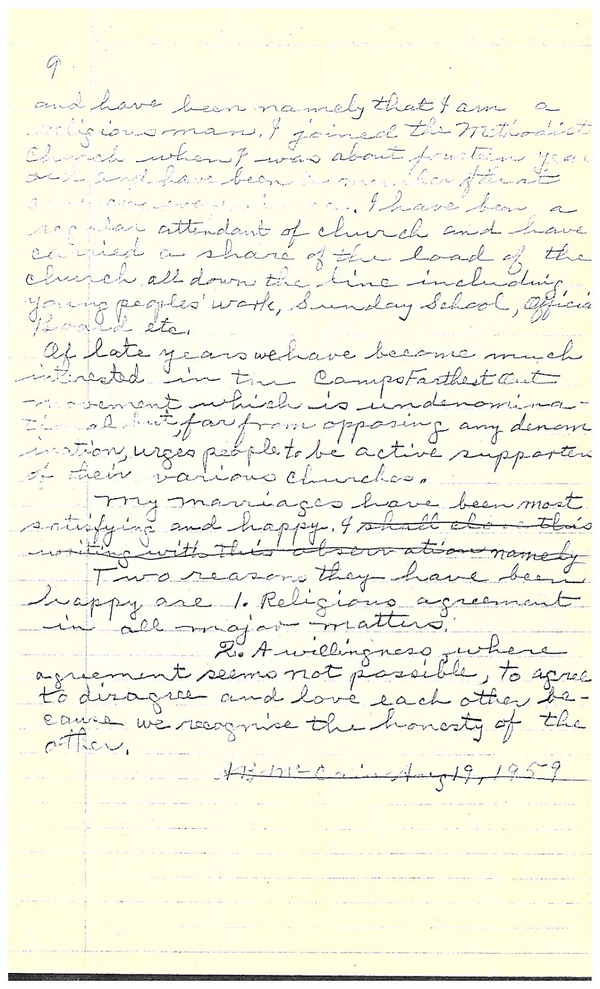 9
and have been namely that I am a
religious man. I joined the Methodist
Church when I was about fourteen yea
old and have been a member of that
I have been a
regular attendant of church and have
carried a share of the load of the
church all down the line including
young peoples' work, Sunday School, Officia
Board etc.
Of late years we have become much
intrested in the Camps Farthest Out
movement which is undenomina-
tional but, far from opposing any denom
ination, urges people to be active supporters
of their various churches.
My marriages have been most
satisfying and happy. I shall close this
writing with this observation namely
Two reasons they have been
happy are 1. Religious agreement
in all major matters.
2. A willingness, where
agreement seems not possible, to agree
to disagree and love each other be-
cause we recognise the honesty of the
other.
Mc Cain Aug 19, 1959